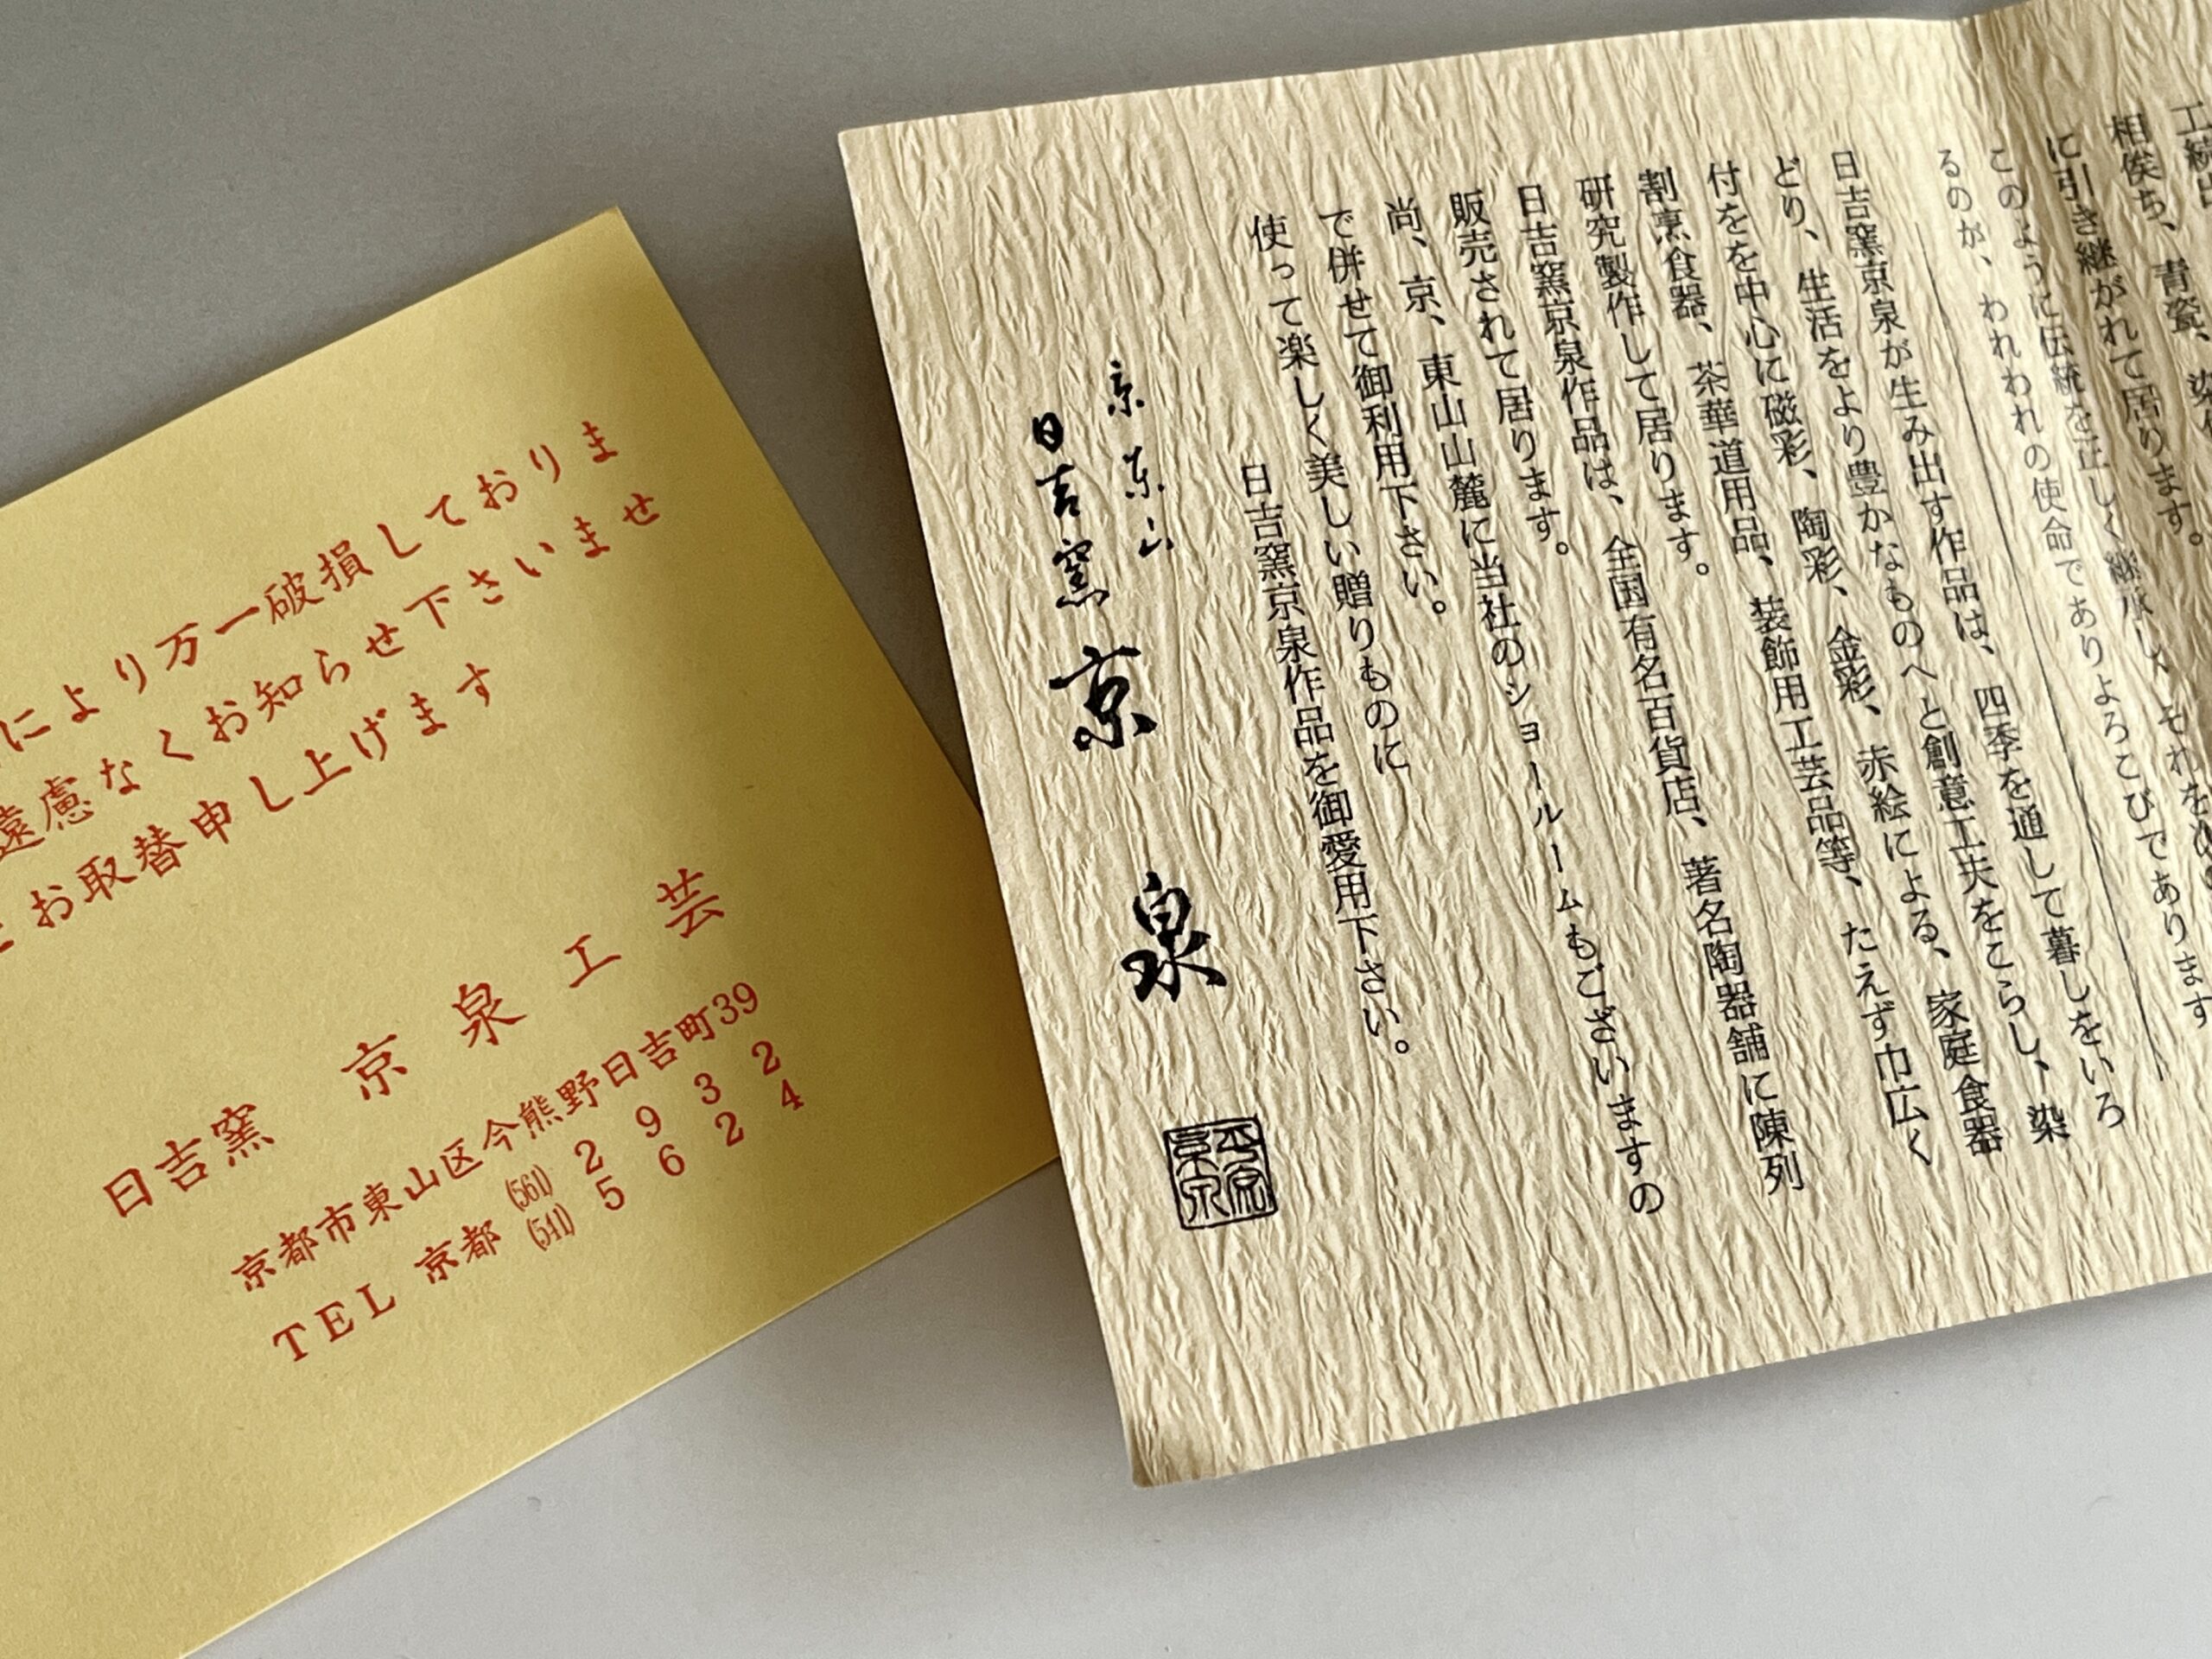 により万一破損しておりま
遠慮なくお知らせ下さいませ
お取替申し上げます
日吉窯 京泉工芸
京都市東山区今熊野日吉町39
TEL 京都 (561) 2932
(541) 5624
相俟ち、青瓷、染付
に引き継がれて居ります。
このように伝統を正しく継承し、それを
るのが、われわれの使命でありよろこびであります
日吉窯京泉が生み出す作品は、四季を通して暮しをいろ
どり、生活をより豊かなものへと創意工夫をこらし、染
付をを中心に磁彩、陶彩、金彩、赤絵による、家庭食器
割烹食器、茶華道用品、装飾用工芸品等、たえず巾広く
研究製作して居ります。
日吉窯京泉作品は、全国有名百貨店、著名陶器舗に陳列
販売されて居ります。
尚、京、東山山麓に当社のショールームもございますの
で併せて御利用下さい。
使って楽しく美しい贈りものに
日吉窯京泉作品を御愛用下さい。
京東山
日吉窯 京泉